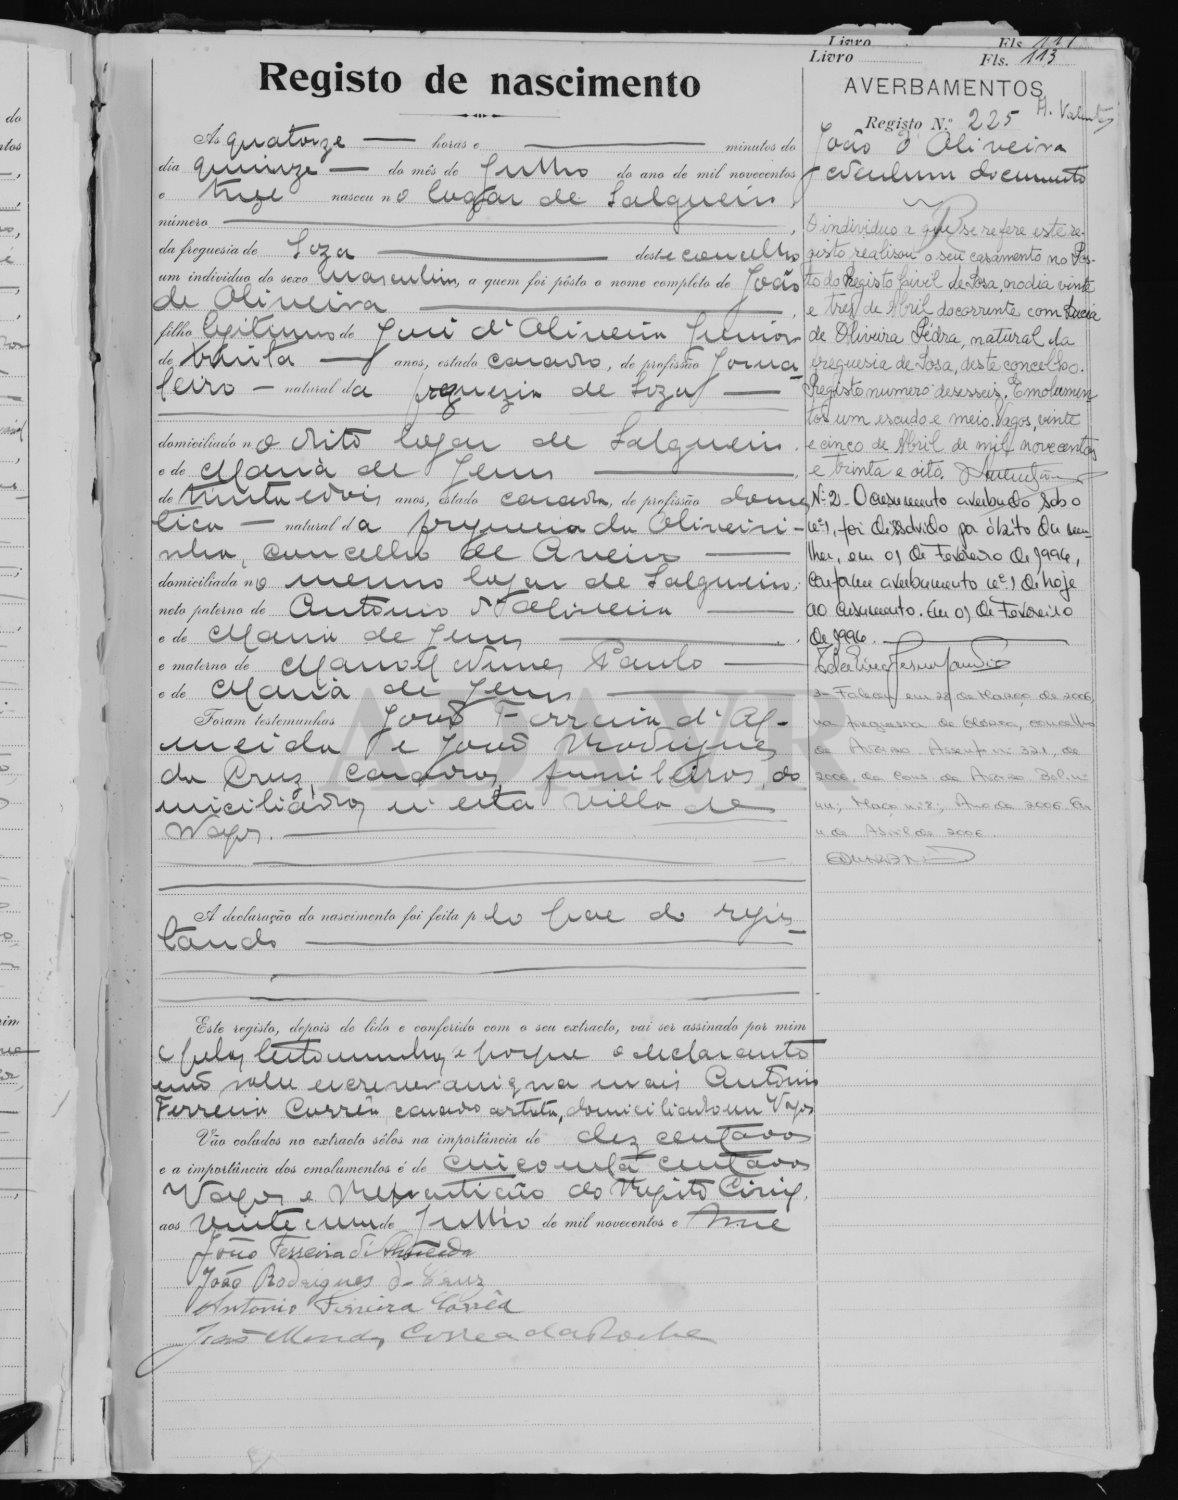 Livro Fls. 111
Livro Fls. 113
Registo de nascimento
AVERBAMENTOS
Registo N.º 225
João d'Oliveira
Ás quatorze — horas e — minutos do
dia quinze — do mês de Julho do ano de mil novecentos
e treze nasceu no logar de Salgueiro,
número
da freguesia de Soza — deste concelho
um individuo do sexo masculino, a quem foi pôsto o nome completo de João
de Oliveira
filho legitimo de José d'Oliveira Junior
de trinta — anos, estado casado, de profissão Jorna-
leiro — natural da freguezia de Soza
domiciliado no dito logar de Salgueiro
e de Maria de Jesus
de trinta e dois anos, estado casada, de profissão domes
tica — natural da freguesia da Oliveiri-
nha, concelho de Aveiro
domiciliada no mesmo logar de Salgueiro,
neto paterno de Antonio d'Oliveira
e de Maria de Jesus
e materno de Manoel Nunes Paulo
e de Maria de Jesus
Foram testemunhas João Ferreira d'Al-
meida e João Rodrigues
da Cruz, casados, funileiros, do
miciliados n'esta villa de
Vagos.
A declaração do nascimento foi feita pelo pae do regis
tando
Este registo, depois de lido e conferido com o seu extracto, vai ser assinado por mim
e pelas testemunhas, e porque o declarante
não sabe escrever assigna mais Antonio
Ferreira Corrêa, casado artista, domiciliado em Vagos
Vão colados no extracto sêlos na importância de dez centavos
e a importância dos emolumentos é de cincoenta centavos
Vagos e Repartição do Registo Civil,
aos vinte e um de Julho de mil novecentos e treze
João Ferreira d'Almeida
João Rodrigues da Cruz
Antonio Ferreira Corrêa
João Mendes Correa da Rocha
O individuo a que se refere este re-
gisto realisou o seu casamento no Pos-
to do Registo Civil de Sosa, no dia vinte
e tres de Abril do corrente com Lucia
de Oliveira Pedra, natural da
freguesia de Sosa, deste concelho.
Registo numero desesseis. Emolumen-
tos um escudo e meio. Vagos, vinte
e cinco de Abril de mil novecentos
e trinta e oito.
N.º 2 - O casamento averbado sob o
nº1, foi dissolvido por óbito da mu-
lher, em 01 de Fevereiro de 1996,
conforme averbamento nº1 de hoje
ao casamento. Em 09 de Fevereiro
de 1996.
3- Faleceu em 28 de Março de 2006,
na freguesia de Glória, concelho
de Aveiro Assento nº 321, de
2006, da Cons. de Aveiro
Maço nº 2; Ano de 2006. Em
4 de Abril de 2006.
ADAVR